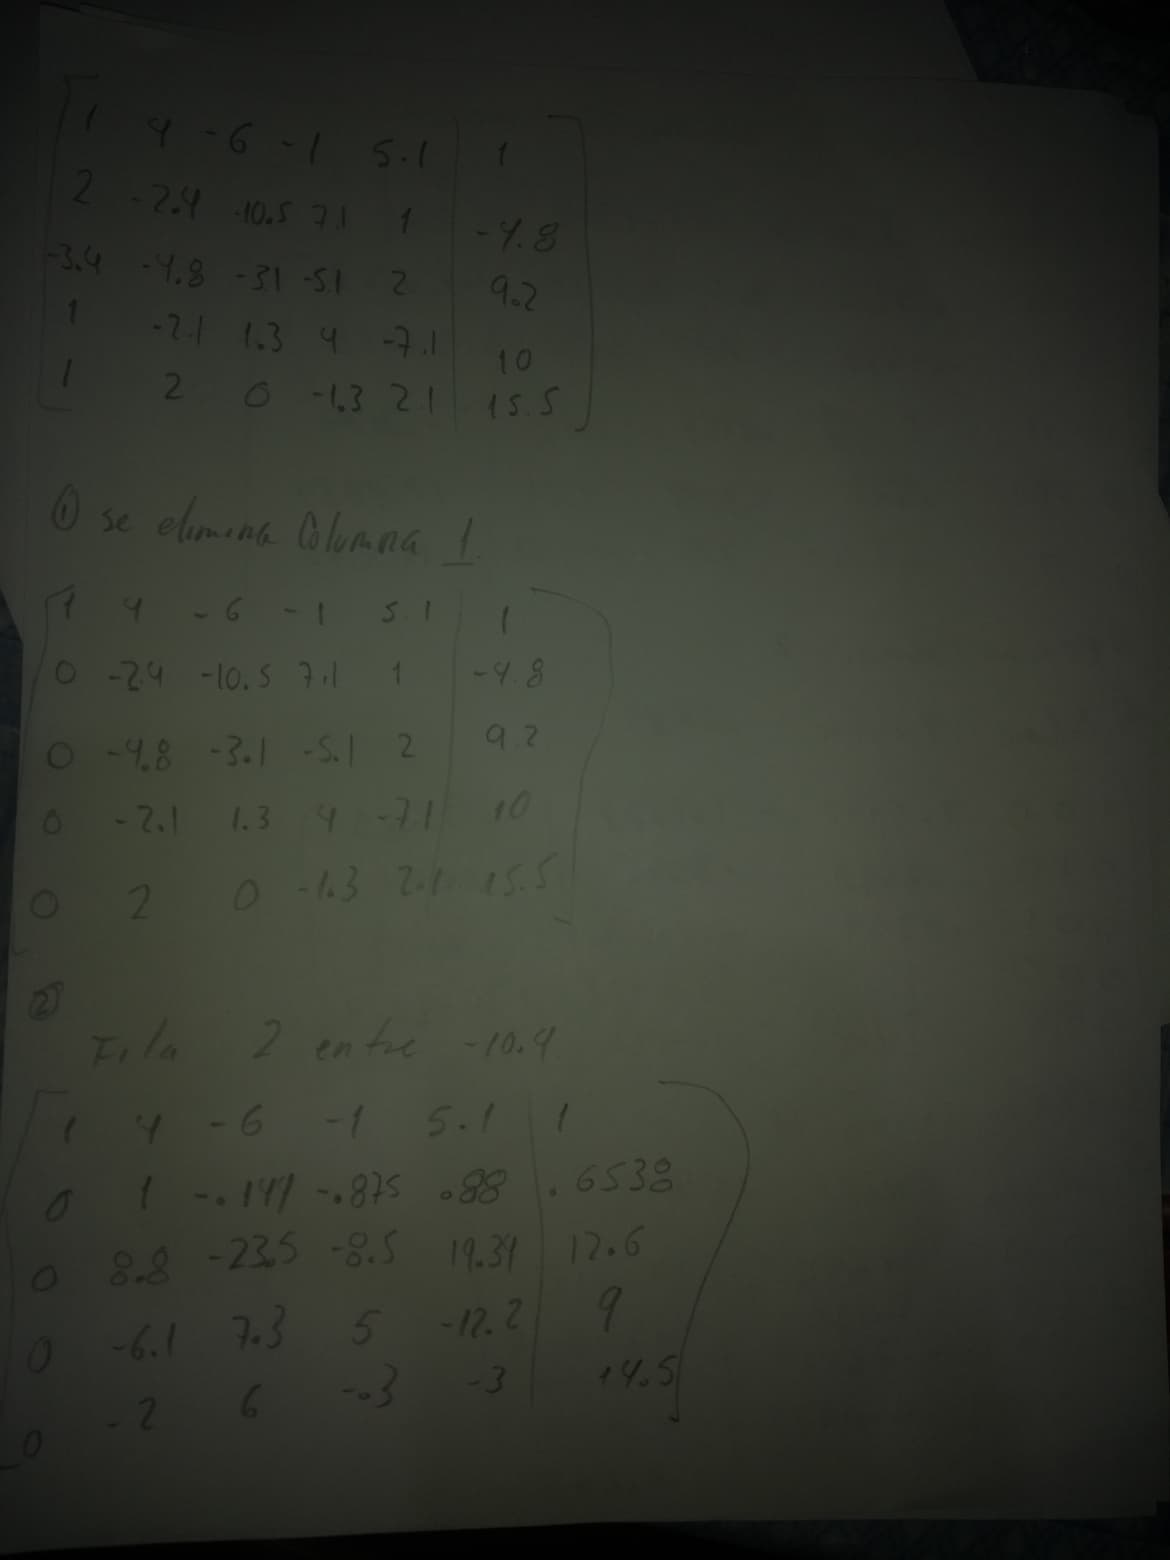 1 4 -6 -1 5.1 1
2 -2.4 -10.5 7.1 1 -4.8
-3.4 -4.8 -3.1 -5.1 2 9.2
1 -2.1 1.3 4 -7.1 10
1 2 0 -1.3 2.1 15.5
① se elimina Columna 1.
1 4 -6 -1 5.1 1
0 -2.4 -10.5 7.1 1 -4.8
0 -4.8 -3.1 -5.1 2 9.2
0 -2.1 1.3 4 -7.1 10
0 2 0 -1.3 2.1 15.5
②
Fila 2 entre -10.4
1 4 -6 -1 5.1 1
0 1 -.144 -.875 .88 .6538
0 8.8 -23.5 -8.5 19.34 12.6
0 -6.1 7.3 5 -12.2 9
0 -2 6 -.3 -3 14.5